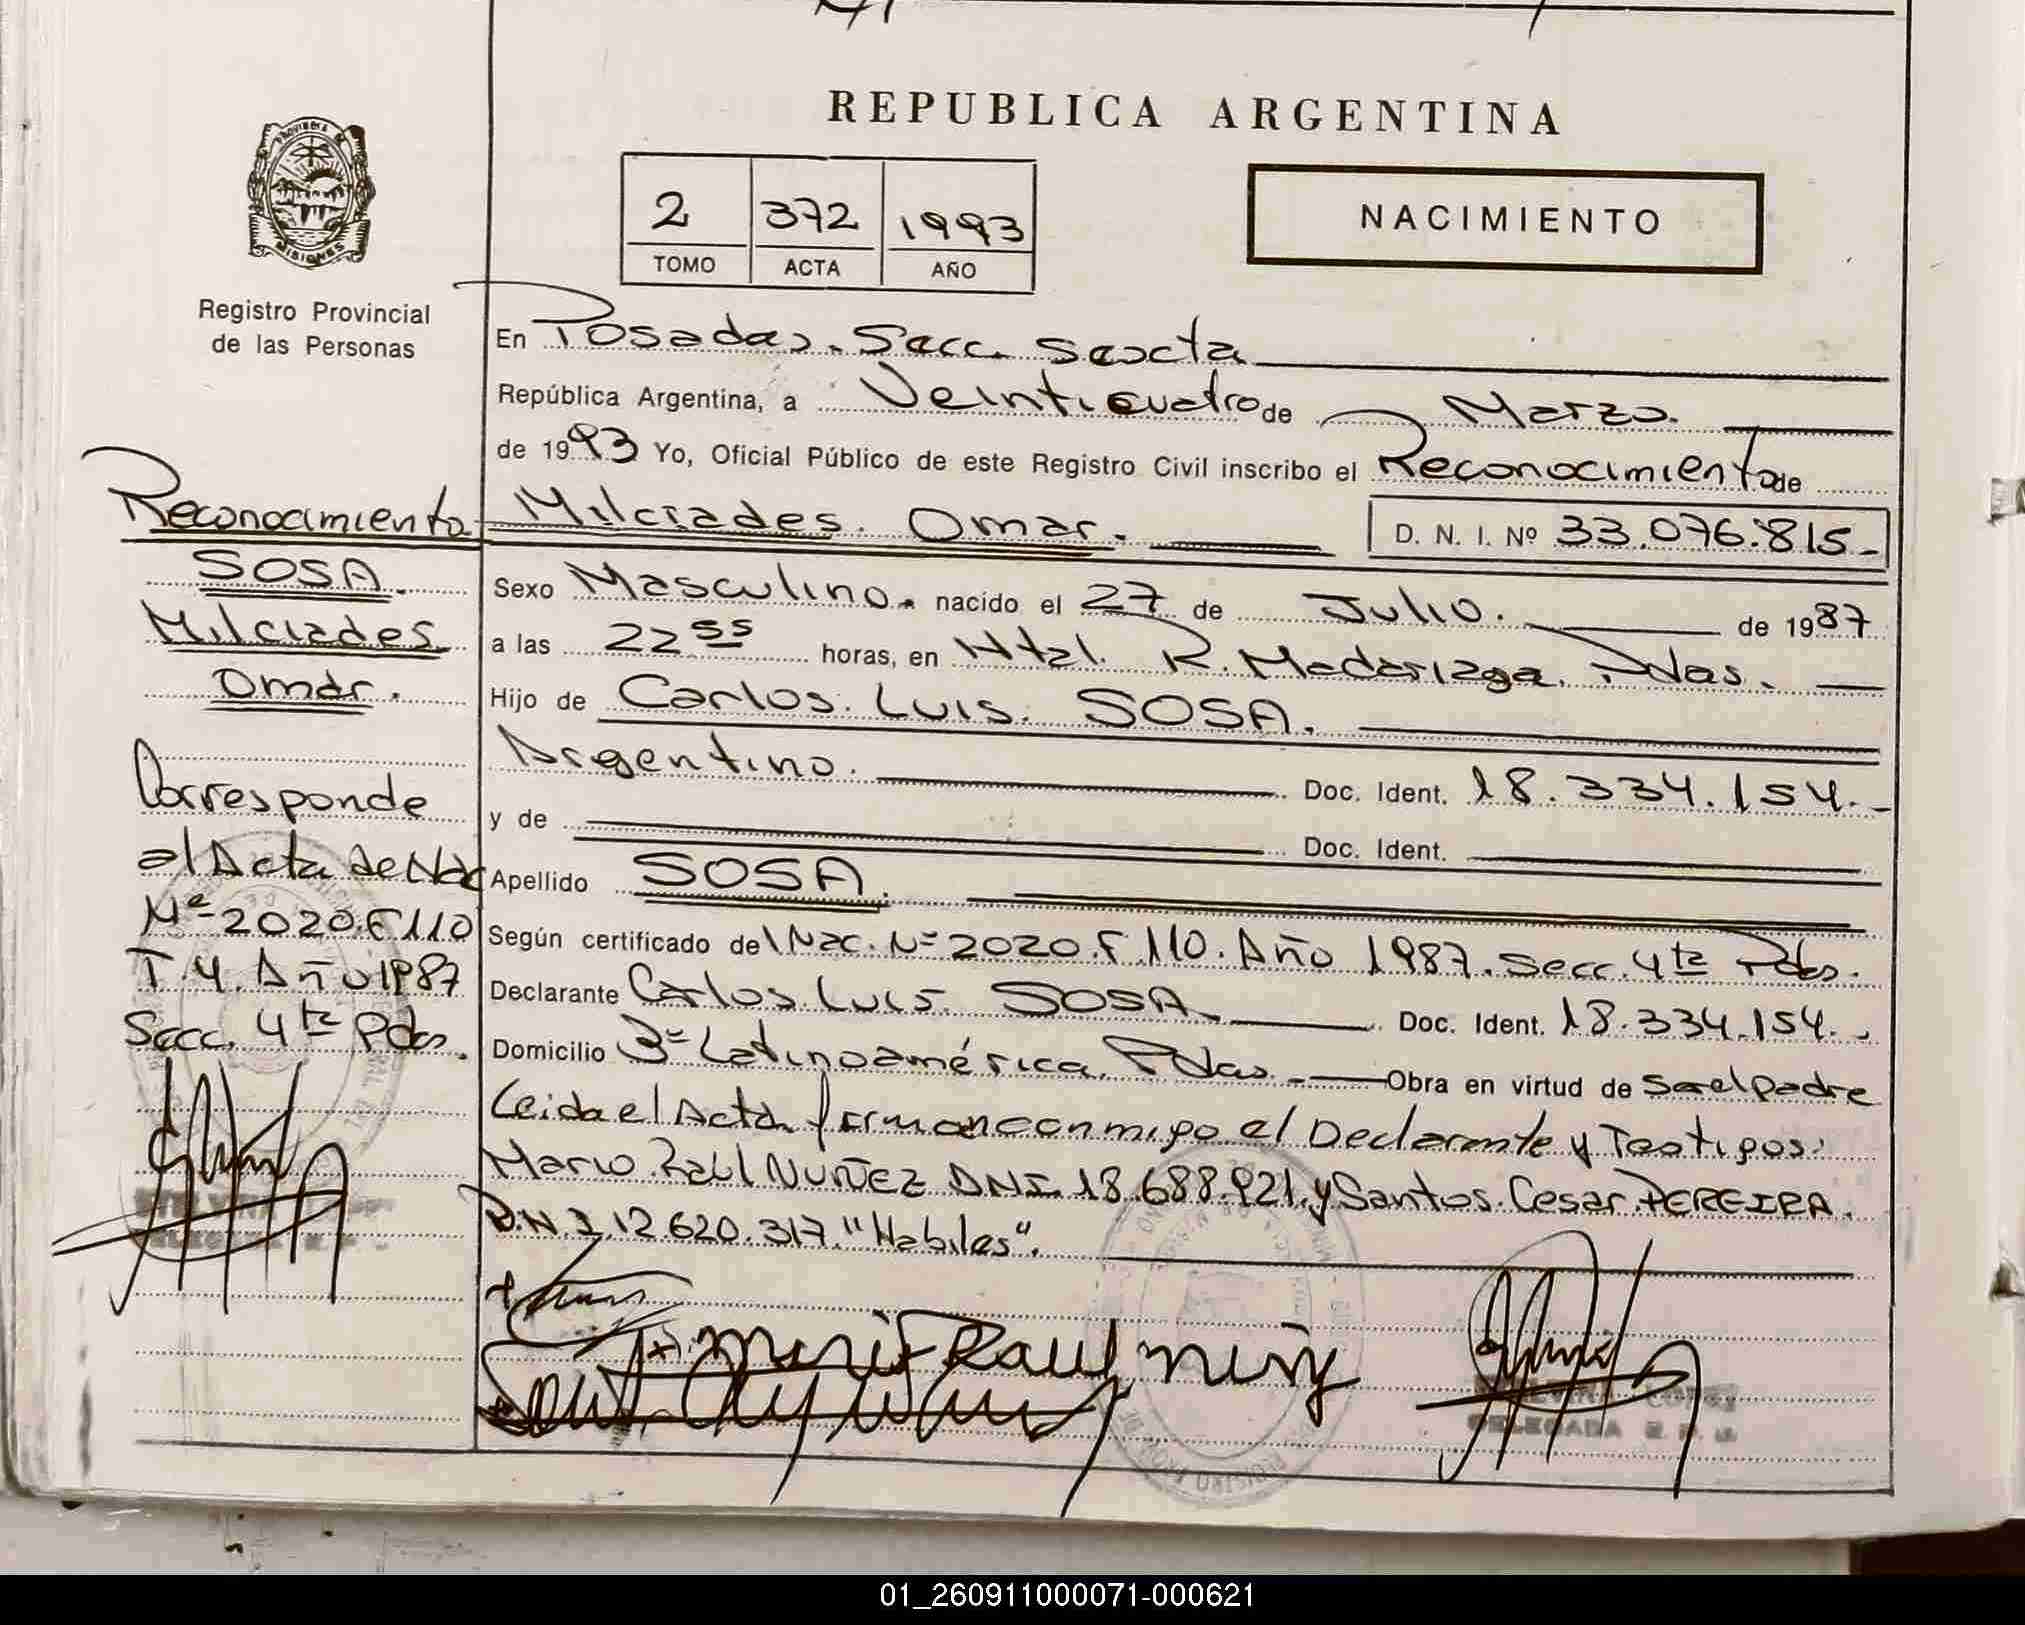 REPUBLICA ARGENTINA
PROVINCIA
MISIONES
Registro Provincial
de las Personas
2 372 1993
TOMO ACTA AÑO
NACIMIENTO
En Posadas. Secc. Sexta
República Argentina, a Veinticuatro de Marzo.
de 1993 Yo, Oficial Público de este Registro Civil inscribo el Reconocimiento de
Milciades. Omar. D. N. I. Nº 33.076.815.-
Sexo Masculino. nacido el 27 de Julio. de 1987
a las 22 55 horas, en Htal. R. Madariaga. Pdas.
Hijo de Carlos. Luis. SOSA.
Argentino. Doc. Ident. 18.334.154.-
y de Doc. Ident.
Apellido SOSA.
Según certificado del Nac. Nº 2020. F. 110. Año 1987. Secc. 4ta Pdas.
Declarante Carlos. Luis. SOSA. Doc. Ident. 18.334.154.-
Domicilio Bº Latinoamérica. Pdas. Obra en virtud de Ser el padre
Leida el Acta firman conmigo el Declarante y Testigos:
Mario Raul NUÑEZ DNI. 18.688.921. y Santos. Cesar. PEREIRA.
D.N.I. 12.620.317. "Habiles".
Mario Raul
DELEGADA
Reconocimiento
SOSA.
Milciades.
Omar.
Corresponde
al Acta de Nac
Nº 2020. F 110
T. 4. Año 1987
Secc. 4ta Pdas.
01_260911000071-000621